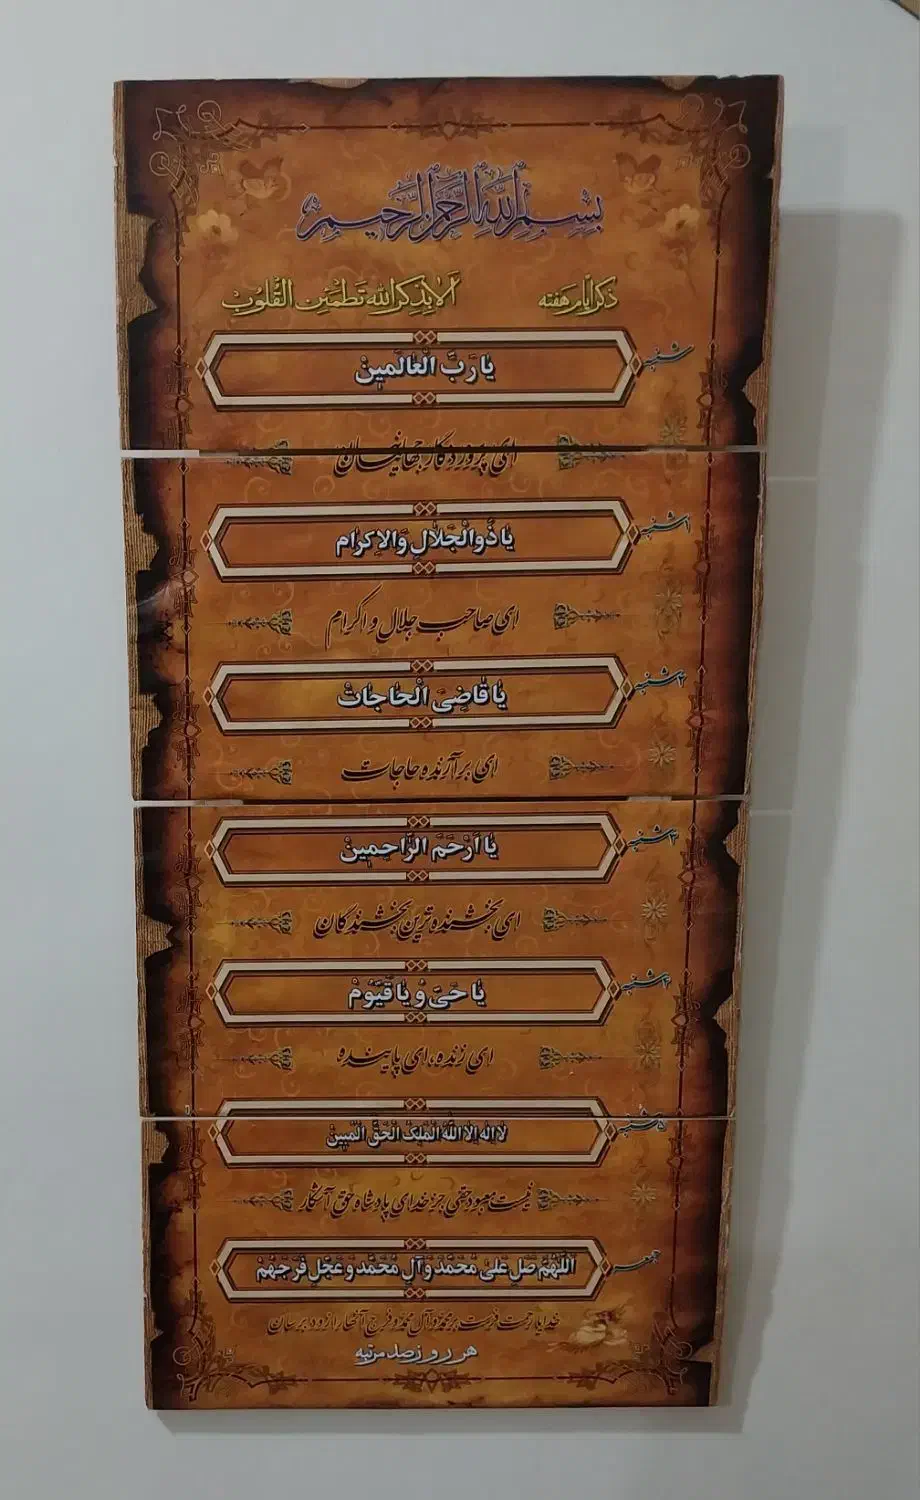 بِسْمِ اللهِ الرَّحْمنِ الرَّحیمِ
ذکر ایام هفته
اَلا بِذِکرِ الله تَطمَئِن القُلُوب
شنبه
یا رَبَّ الْعالَمینْ
ای پروردگار جهانیان
۱شنبه
یا ذَوالْجَلالِ وَالاِکرام
ای صاحب جلال و اکرام
۲شنبه
یا قاضِیَ الْحاجاتْ
ای برآرنده حاجات
۳شنبه
یا اَرْحَمَ الرّاحِمینْ
ای بخشنده ترین بخشندگان
۴شنبه
یا حَیُ وُ یا قَیّومْ
ای زنده، ای پاینده
۵شنبه
لا اله اِلا اللّهُ الْمَلِکُ الْحَقُّ الْمُبینْ
نیست معبود حقی جز خدای پادشاه حق آشکار
جمعه
اَللّهُمَّ صَلِ عَلی مُحَمَّدْ وَ آلِ مُحَمَّد وَ عَجِّلِ فَرَجَهُمْ
خدایا رحمت فرست بر محمد و آل محمد و فرج آنها را زود برسان
هر روز صد مرتبه